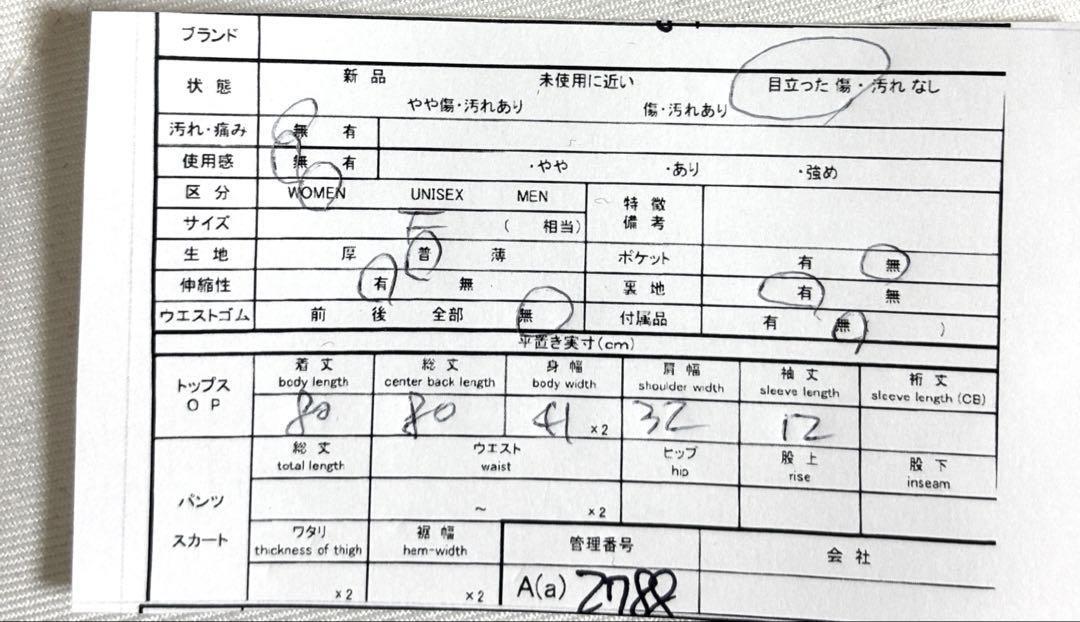 ブランド
状態 新品 未使用に近い 目立った傷・汚れなし
やや傷・汚れあり 傷・汚れあり
汚れ・痛み 無 有
使用感 無 有 ・やや ・あり ・強め
区分 WOMEN UNISEX MEN 特徴
サイズ F ( 相当) 備考
生地 厚 普 薄 ポケット 有 無
伸縮性 有 無 裏地 有 無
ウエストゴム 前 後 全部 無 付属品 有 無 )
平置き実寸(cm)
着丈 総丈 身幅 肩幅 袖丈 裄丈
トップス body length center back length body width shoulder width sleeve length sleeve length (CB)
OP 80 80 41 ×2 32 12
総丈 ウエスト ヒップ 股上 股下
total length waist hip rise inseam
パンツ ～ ×2
スカート ワタリ 裾幅 管理番号 会社
thickness of thigh hem-width
×2 ×2 A(a) 2788